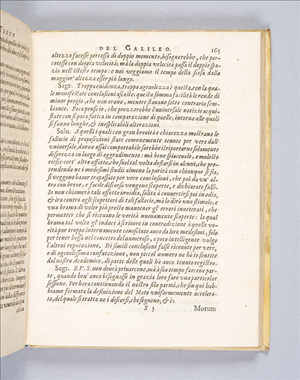 DEL GALILEO. 165
altezza facesse percossa di doppio momento, bisognerebbe, che per-
cotesse con doppia velocità: ma la doppia velocità passa il doppio spa-
zio nell'istesso tempo: e noi veggiamo il tempo della scesa dalla
maggior' altezza esser più lungo.
Sagr. Troppa evidenza, troppa agevolezza è questa, con la qua-
le manifestate conclusioni ascoste: questa somma facilità le rende di
minor pregio, che non erano, mentre stavano sotto contrario sem-
biante. Poco penso io, che prezzerebbe l'universale notizie acqui-
state con sì poca fatica in comparazione di quelle, intorno alle quali
si fanno lunghe, & inesplicabili altercazioni.
Salv. A quelli i quali con gran brevità e chiarezza mostrano le
fallacie di proposizioni state comunemente tenute per vere dall'
universale, danno assai comportabile sarebbe il riportarne solamente
disprezzo in luogo di aggradimento: ma bene spiacevole, e molesto
riesce cert' altro affetto, che suol tal volta destarsi in alcuni, che pre-
tendendo ne i medesimi studii almeno la parità con chiunque si sia,
si veggono haver trapassate per vere conclusioni, che poi da un' al-
tro con breve, e facile discorso vengono scoperte, e dichiarate false.
Io non chiamerò tale affetto invidia, solita à convertirsi poi in odio,
& ira contro agli scopritori di tali fallacie, ma lo dirò uno stimolo, e
una brama di voler più presto mantener gl' errori inveterati, che
permetter che si ricevano le verità nuovamente scoperte: la qual
brama tal volta gl' induce à scrivere in contradizione à quelle ve-
rità pur troppo internamente conosciute anco da loro medesimi, solo
per tener bassa nel concetto del numeroso, e poco intelligente vulgo
l'altrui reputazione. Di simili conclusioni false ricevute per vere,
e di agevolissima confutazione, non piccol numero ne hò io sentite
dal nostro Academico, di parte delle quali hò anco tenuto registro.
Sagr. E V.S. non dovrà privarcene, mà à suo tempo farcene par-
te, quando ben' anco bisognasse in grazia loro fare una particolar
sessione. Per hora continuando il nostro filo parmi, che sin quì hab-
biamo fermata la definizione del Moto uniformemente accelera-
to, del quale si tratta ne i discorsi, che seguono, & è;
X 3 Motum